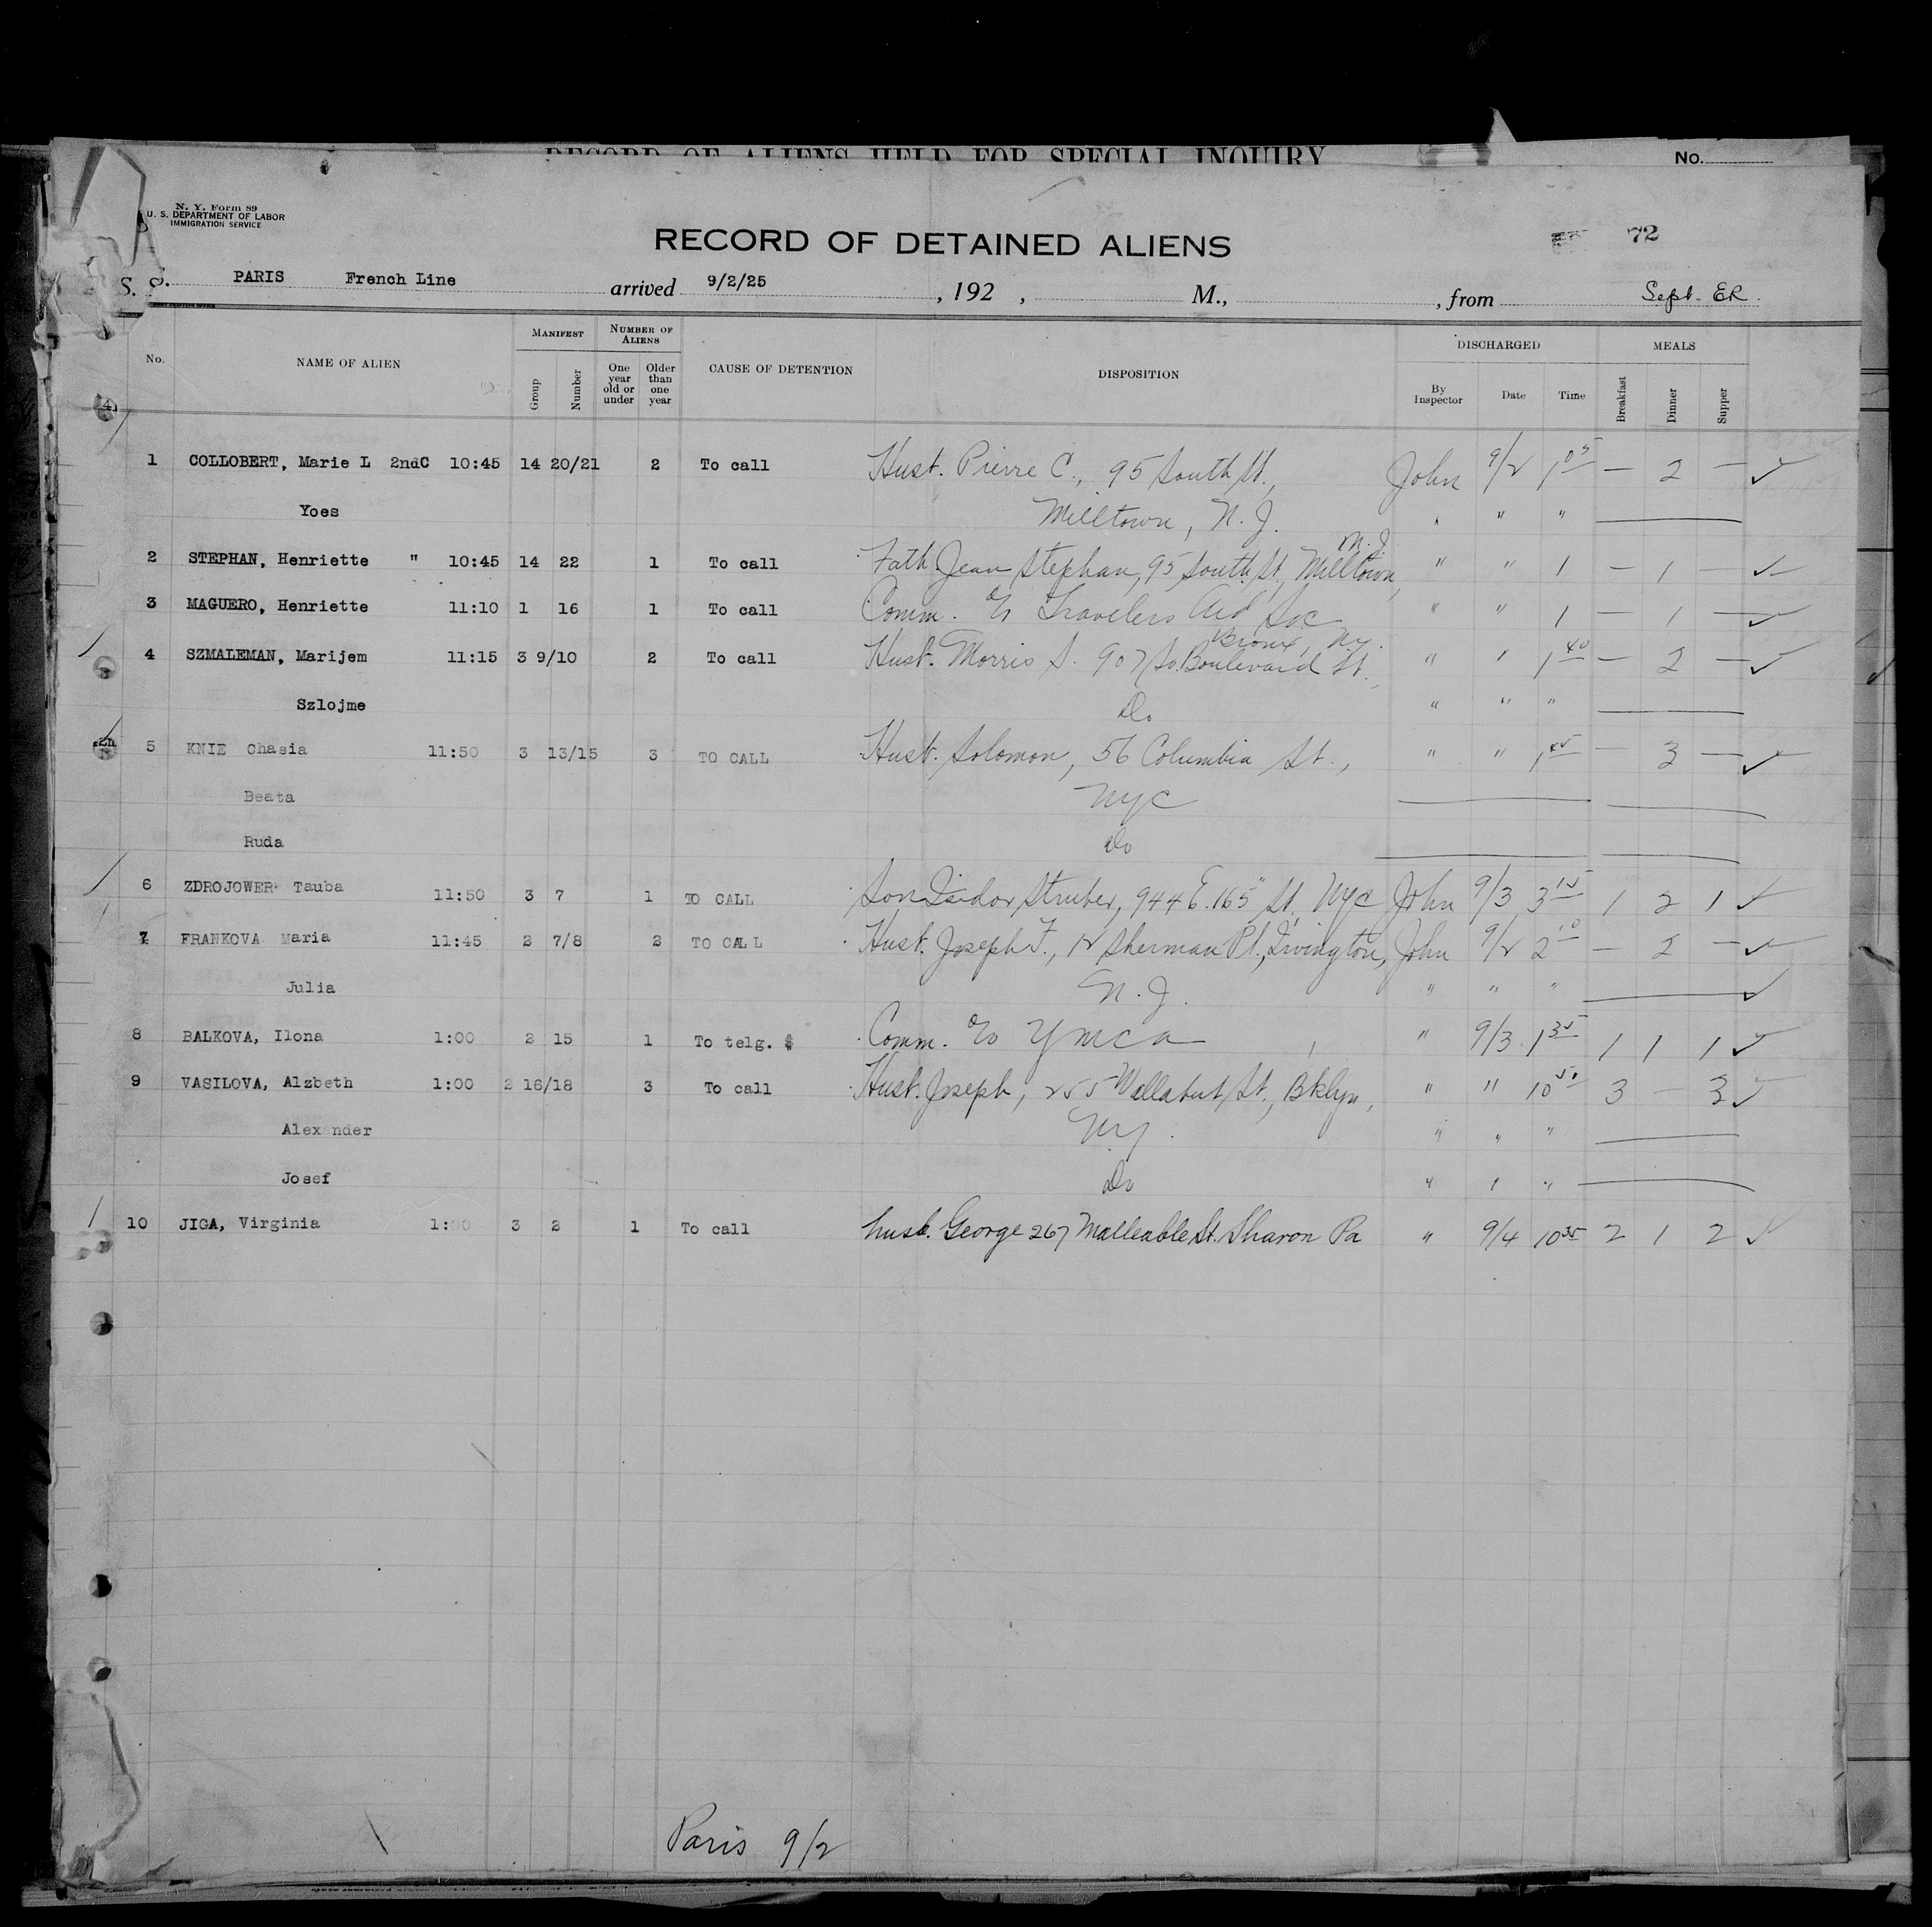 RECORD OF ALIENS HELD FOR SPECIAL INQUIRY
No.
N. Y. Form 89
U. S. DEPARTMENT OF LABOR
IMMIGRATION SERVICE
RECORD OF DETAINED ALIENS
72
S. S. PARIS French Line arrived 9/2/25 , 192 , M., , from Sept. ER.
No. NAME OF ALIEN MANIFEST NUMBER OF ALIENS CAUSE OF DETENTION DISPOSITION DISCHARGED MEALS
Group Number One year old or under Older than one year By Inspector Date Time Breakfast Dinner Supper
1 COLLOBERT, Marie L 2ndC 10:45 14 20/21 2 To call Husb. Pierre C., 95 South St., John 9/2 1 05 — 2 — ✓
Yoes Milltown, N. J. " " "
2 STEPHAN, Henriette " 10:45 14 22 1 To call Fath Jean Stephan, 95 South St., Milltown, N. J. " " 1 — 1 — ✓
3 MAGUERO, Henriette 11:10 1 16 1 To call Comm. c/o Travelers Aid Soc " " 1 — 1 — ✓
4 SZMALEMAN, Marijem 11:15 3 9/10 2 To call Husb. Morris S. 907 So. Boulevard St., Bronx, NY. " " 1 40 — 2 — ✓
Szlojme Do " " "
5 KNIE Chasia 11:50 3 13/15 3 TO CALL Husb. Solomon, 56 Columbia St., " " 1 45 — 3 — ✓
Beata NYC
Ruda Do
6 ZDROJOWER Tauba 11:50 3 7 1 TO CALL Son Isidor Struber, 944 E. 165" St, NYC John 9/3 3 15 1 2 1 ✓
7 FRANKOVA Maria 11:45 2 7/8 2 TO CALL Husb. Joseph F., 12 Sherman Pl., Irvington, John 9/2 2 10 — 2 — ✓
Julia N. J. " " " ✓
8 BALKOVA, Ilona 1:00 2 15 1 To telg. $ Comm. c/o YMCA " 9/3 1 35 1 1 1 ✓
9 VASILOVA, Alzbeth 1:00 2 16/18 3 To call Husb. Joseph, 255 Wallabut St., Bklyn, " " 10 50 3 — 3 ✓
Alexander NY. " " "
Josef Do " " "
10 JIGA, Virginia 1:00 3 2 1 To call husb. George 267 Malleable St. Sharon Pa " 9/4 10 35 2 1 2 ✓
Paris 9/2